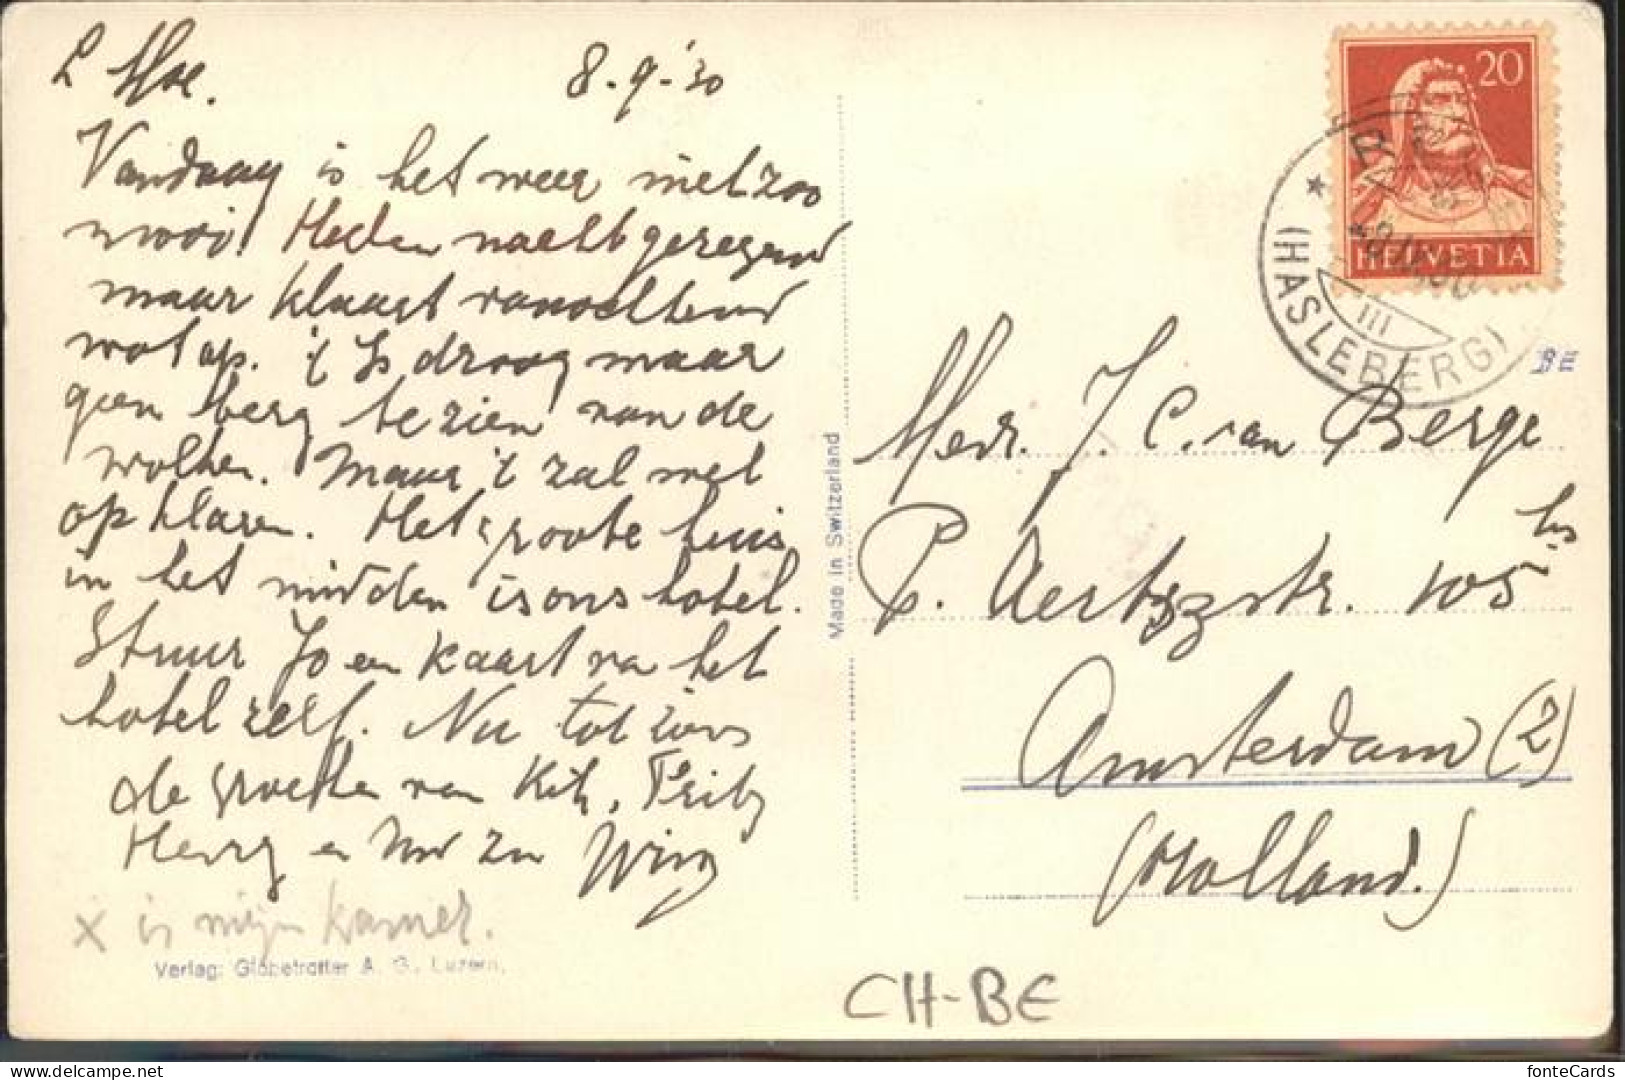 L Moe.
8-9-'30
Vandaag is het weer niet zoo
mooi! Heelen nacht geregend
maar klaart vanochtend
wat op. 't Is droog maar
geen berg te zien van de
wolken. Maar 't zal wel
opklaren. Het groote huis
in het midden is ons hotel.
Stuur Jo een kaart va het
hotel zelf. Nu tot ziens
de groeten van Fritz
Henry en Uw zn Wim
x is mijn kamer.
Verlag: Globetrotter A. G., Luzern.
Made in Switzerland
20
HELVETIA
(HASLEBERG)
III
BE
Mevr. J. C. van Berge
P. Aertszstr. 105 hs
Amsterdam (Z)
(Holland.)
CH-BE
fonteCards